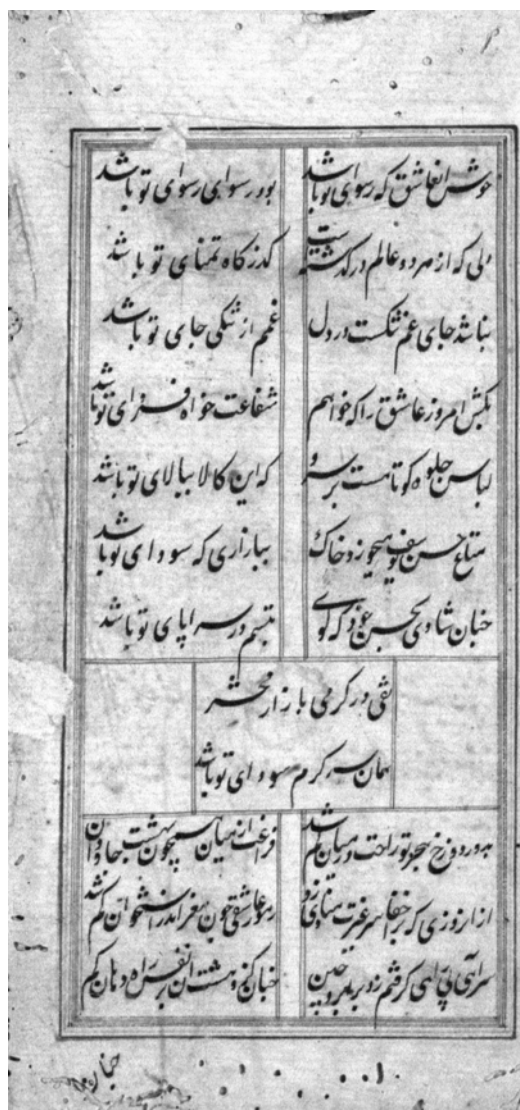 خوش آن عاشق که رسوای تو باشد
بود رسوای رسوای تو باشد
دلی که از هر دو عالم درگذشتست
گذرگاه تمنای تو باشد
نباشد جای غم تنگست در دل
غمم از تنگی جای تو باشد
بکش امروز عاشق را که خواهم
شفاعت خواه فردای تو باشد
لباس جلوه کوتاهست بر سرو
که این کالا ببالای تو باشد
متاع حسن یوسف هیچوزد خاک
ببازاری که سودای تو باشد
چنان شادی بحسن خود که گوی
تبسم در سراپای تو باشد
تقی در گرمی بازار محشر
همان سرگرم سودای تو باشد
دوزخ هجر تو راحت در میان گم شد
فراغت از میان همچون بهشت جاودان
از آن روزی که بر خفا سر غیرت
رموز عاشقی چون مغز اندر استخوان گم شد
سرآهی گرفتم
چنان کز وحشت آن نفس را ره دهان گم
چنان